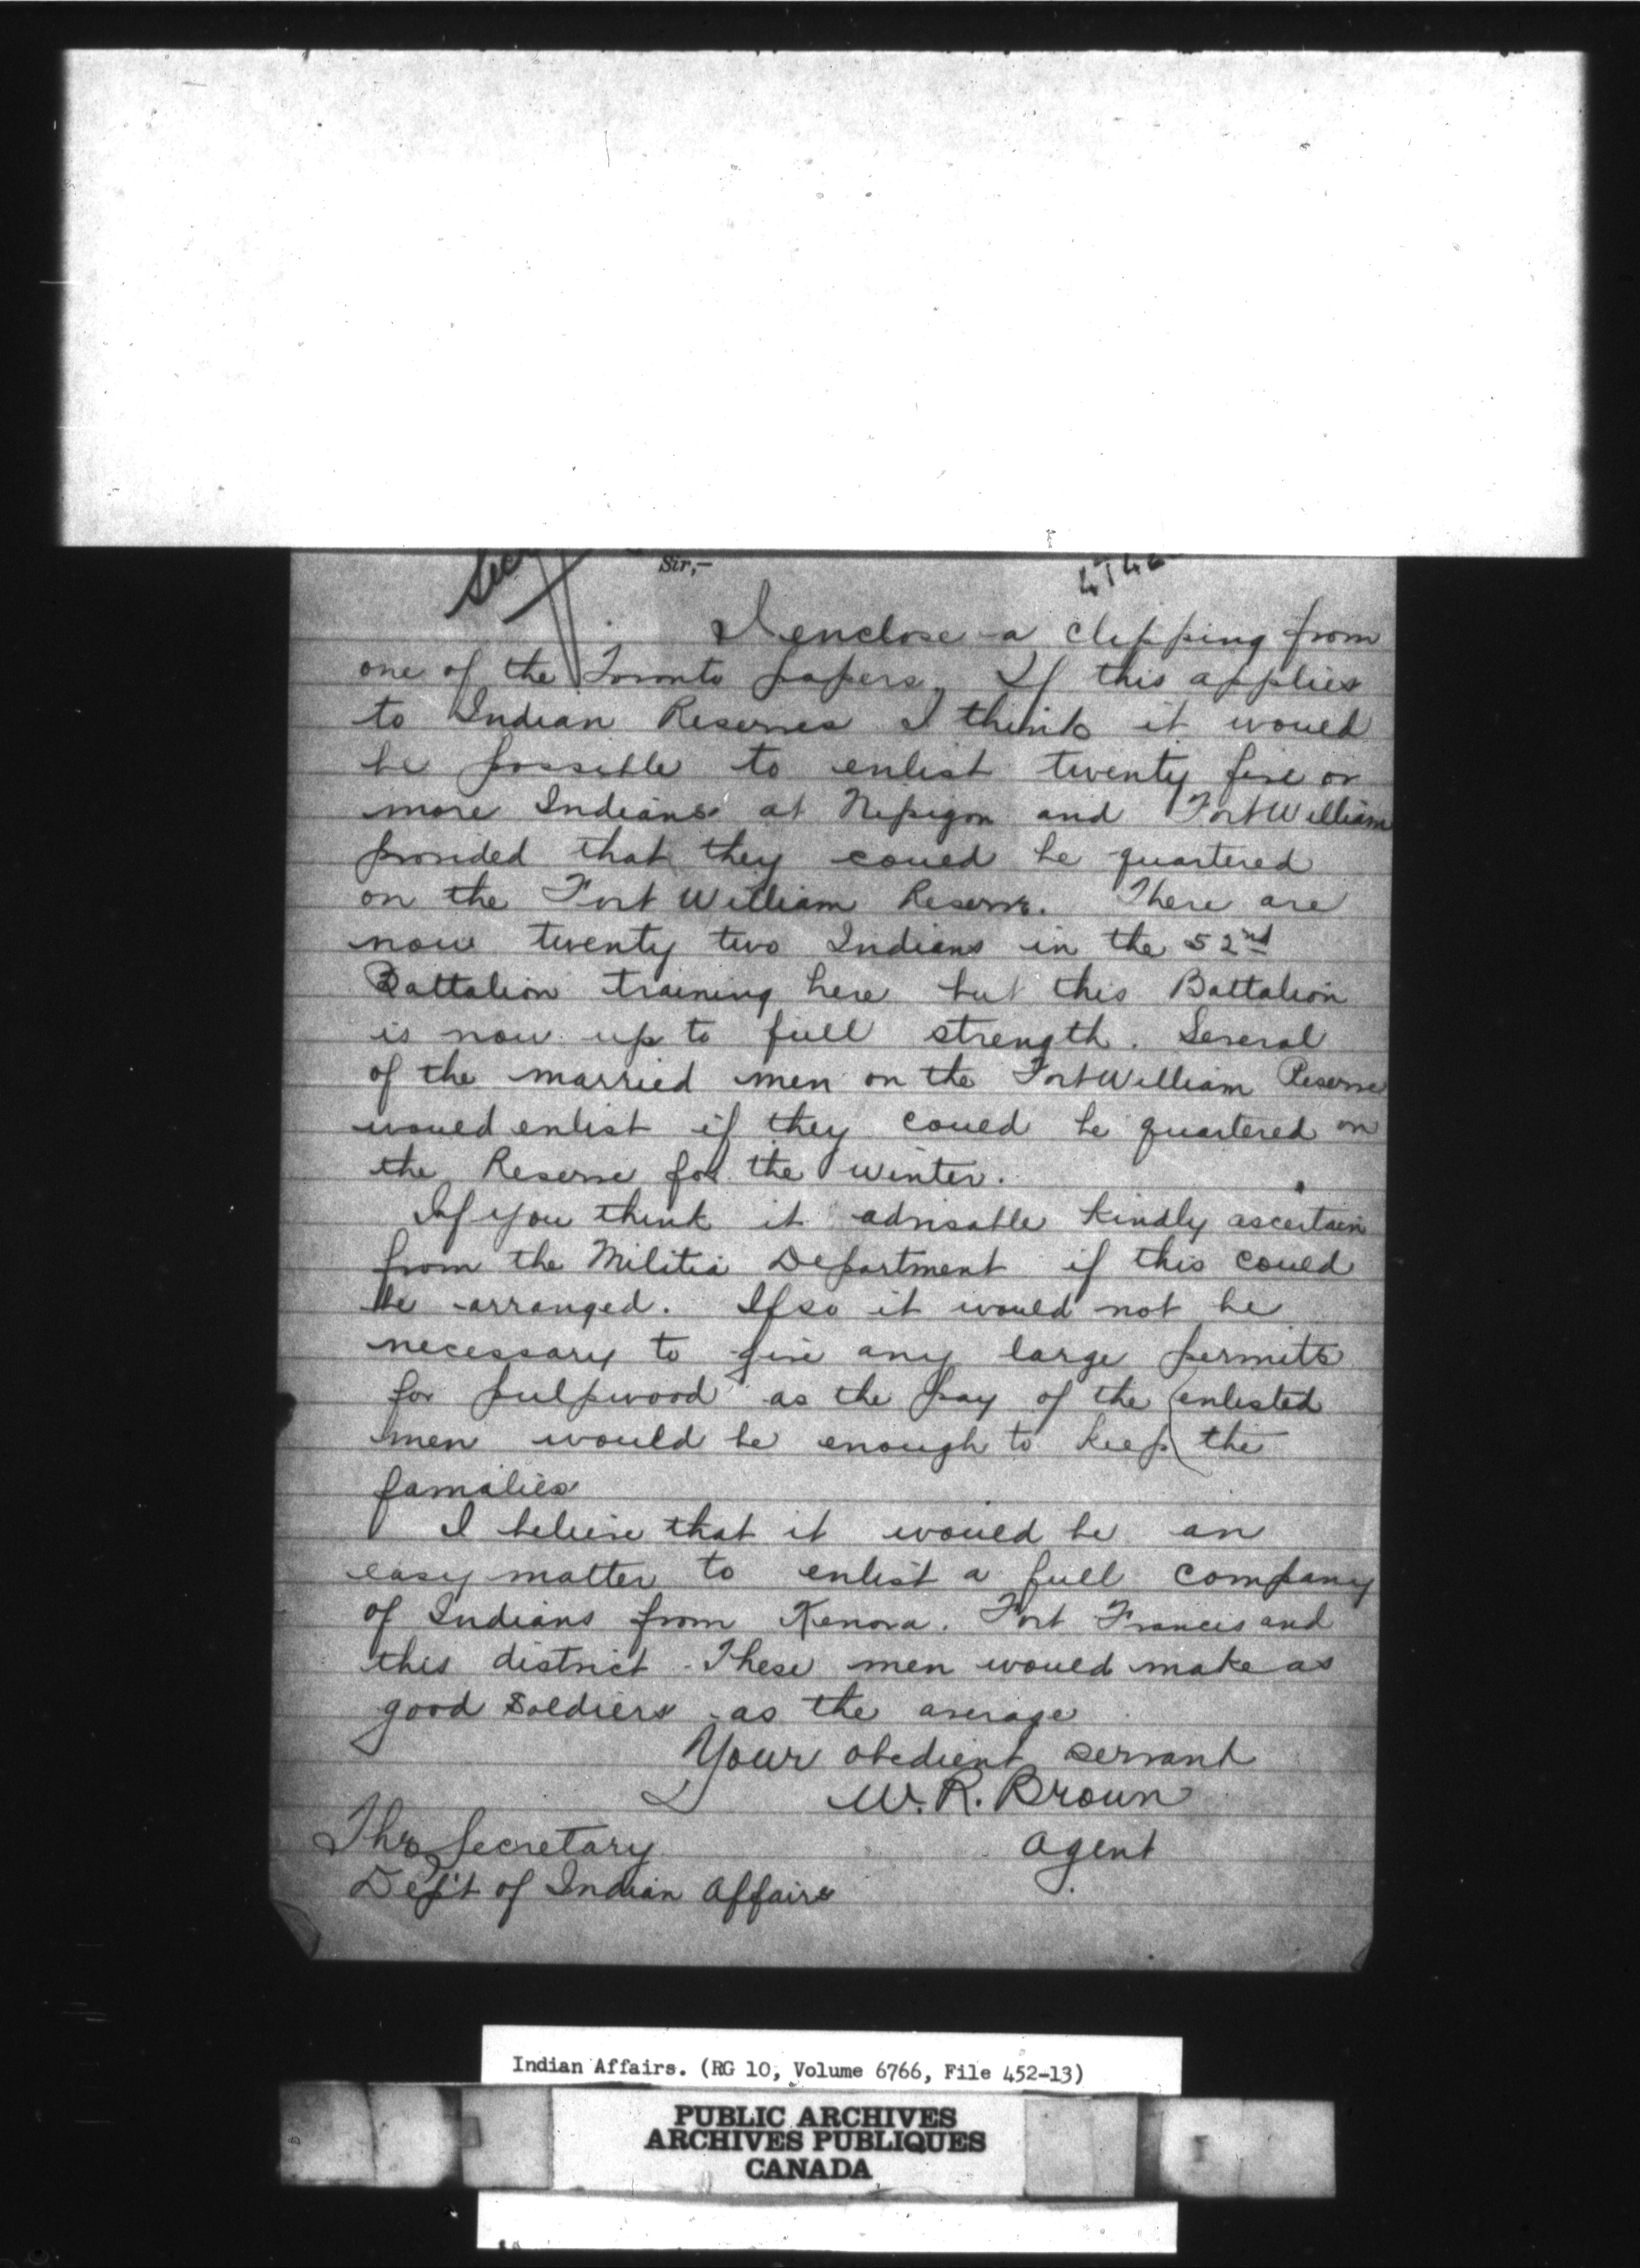 Sir,-
I enclose a clipping from
one of the Toronto papers. If this applies
to Indian Reserves I think it would
be possible to enlist twenty five or
more Indians at Nepigon and Fort William
provided that they could be quartered
on the Fort William Reserve. There are
now twenty two Indians in the 52nd
Battalion training here but this Battalion
is now up to full strength. Several
of the married men on the Fort William Reserve
would enlist if they could be quartered on
the Reserve for the winter.
If you think it advisable kindly ascertain
from the Militia Department if this could
be arranged. If so it would not be
necessary to give any large permits
for pulpwood as the pay of the enlisted
men would be enough to keep the
families
I believe that it would be an
easy matter to enlist a full company
of Indians from Kenora. Fort Francis and
this district. These men would make as
good soldiers as the average
Your obedient servant
W. R. Brown
Agent
The Secretary
Dep't of Indian Affairs
Indian Affairs. (RG 10, Volume 6766, File 452-13)
PUBLIC ARCHIVES
ARCHIVES PUBLIQUES
CANADA